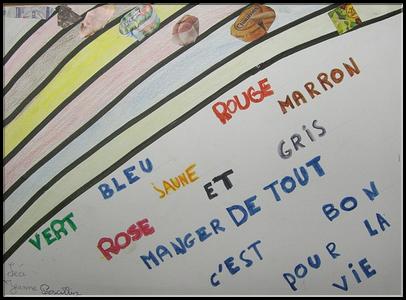 VERT BLEU JAUNE ROUGE MARRON
ROSE ET GRIS
MANGER DE TOUT
C'EST BON
POUR LA
VIE